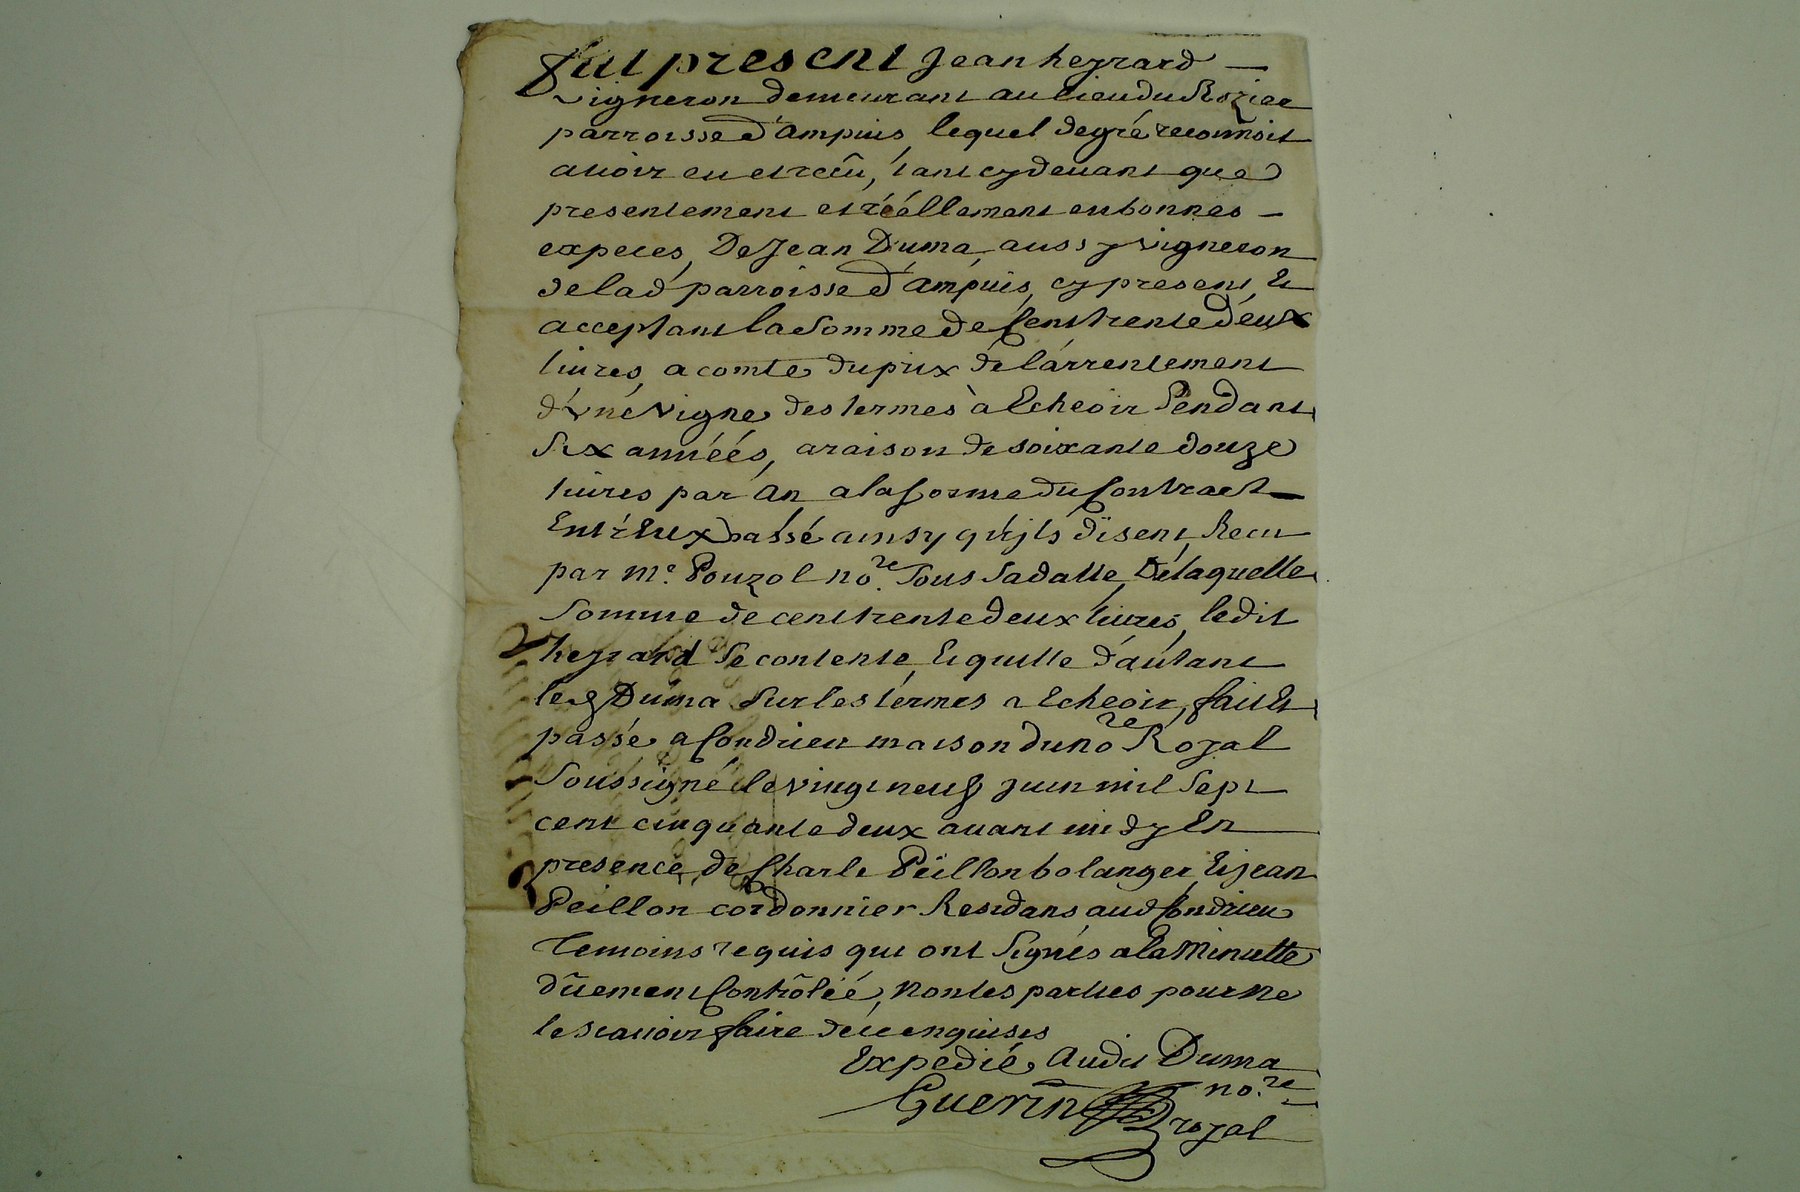 fut present Jean heyrard
vigneron demeurant au lieu du Rozier
parroisse d'ampuis, lequel de gré reconnoit
auoir eu et receû, tant cy deuant que
presentement et réellement en bonnes
expeces, De Jean Duma, aussy vigneron
de lad parroisse d'ampuis, cy present, Et
acceptant la Somme de Cent trente deux
liures, a comte du prix de l'arrentement
d'vne vigne, des termes à Echeoir Pendant
Six années, a raison de soixante douze
liures par an a la forme du Contract
Entr'Eux passé ainsy qu'jls disent, Receu
par me. Pouzol nore. Sous Sa datte, De laquelle
Somme de cent trente deux liures, ledit
heyrard Se contente, Et quitte d'autant
led Duma Sur les termes a Echeoir, fait Et
passé a Condrieu maison du nore Royal
Soussigné le vingt neuf juin mil Sept
cent cinquante deux auant midy En
presence de Charle Peillon bolanger, Et jean
Peillon cordonnier Residants aud Condrieu
Temoins requis qui ont Signés a la Minutte
dûement Contrôlée, Non les parties pour Ne
le scauoir faire de ce enquises
Expedié audit Duma
Guerin nore.
royal